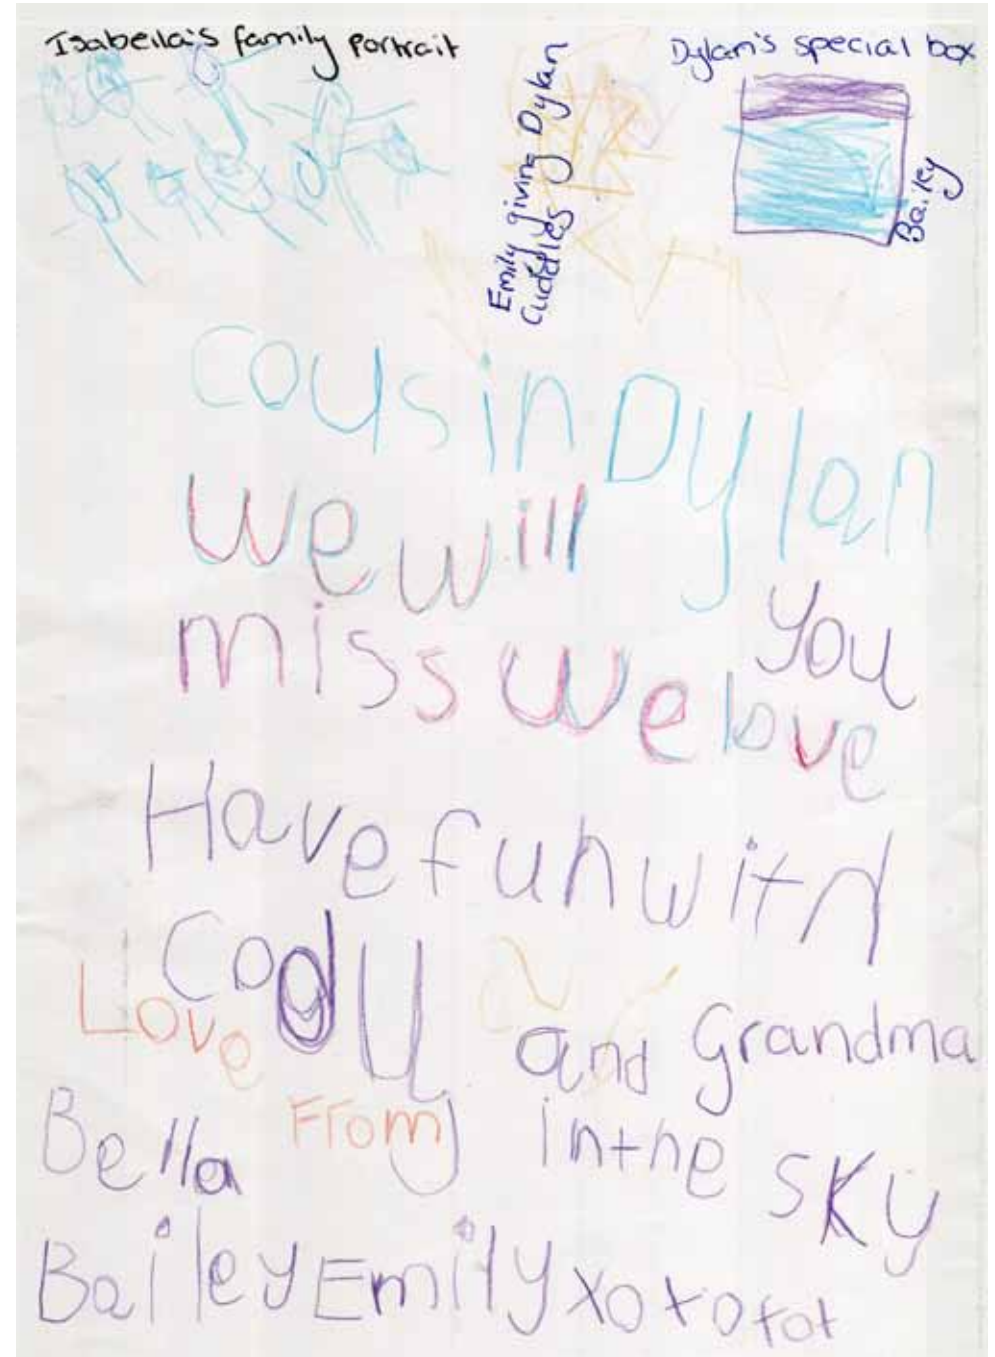 Isabella's family portrait
Emily giving Dylan
Cuddles
Dylan's special box
Bailey
Cousin Dylan
We will
miss We love
You
Have fun with
Cody
and Grandma
in the sky
Love
From
Bella
Bailey Emily xoxoxox